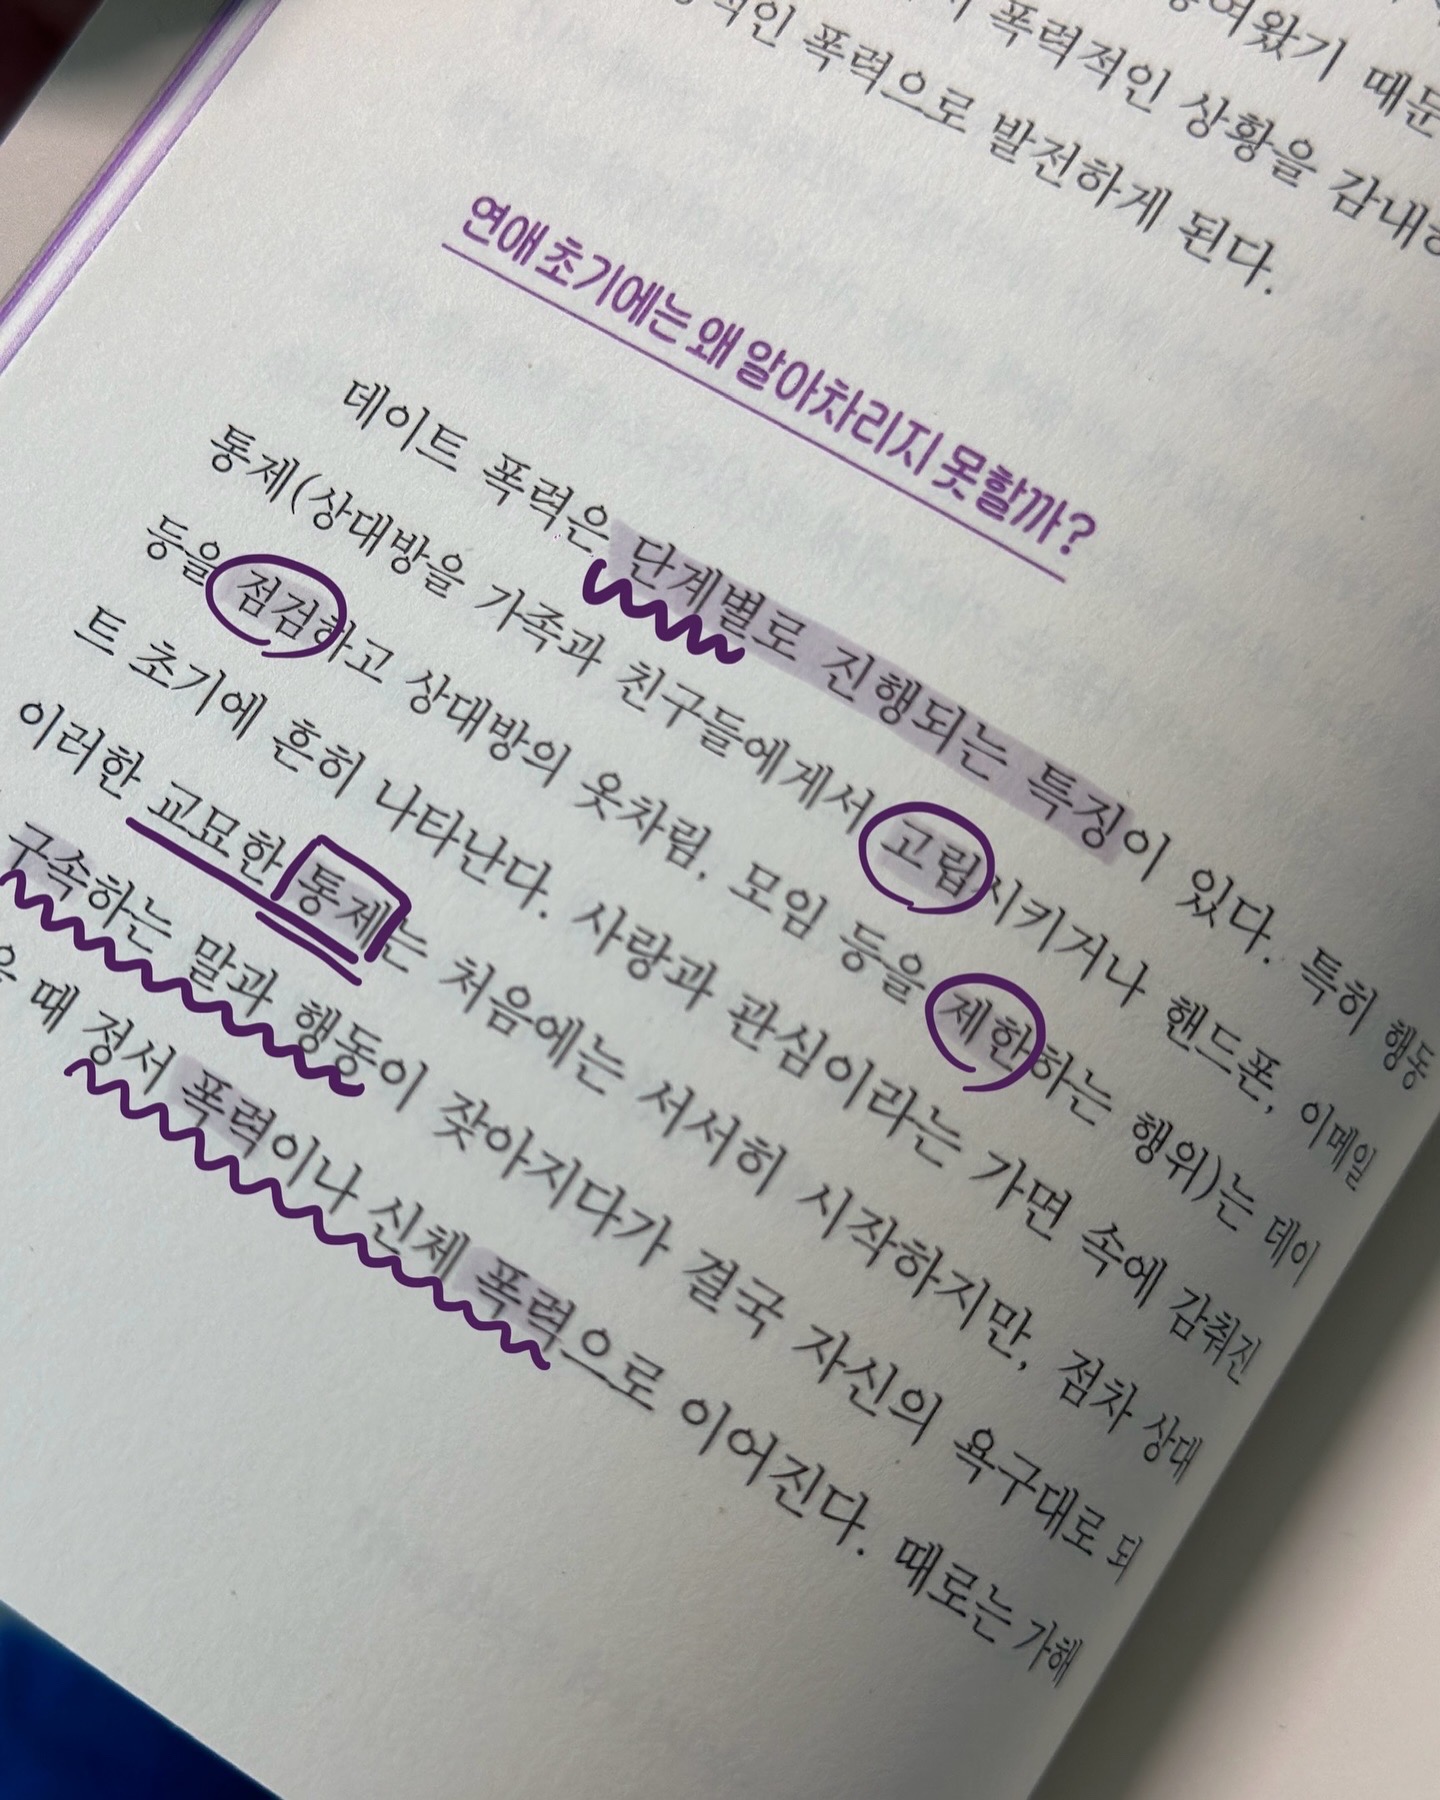 폭력적인 상황을 감내
폭력으로 발전하게 된다.
연애 초기에는 왜 알아차리지 못할까?
데이트 폭력은 단계별로 진행되는 특징이 있다. 특히 행동
통제(상대방을 가족과 친구들에게서 고립시키거나 핸드폰, 이메일
등을 점검하고 상대방의 옷차림, 모임 등을 제한하는 행위)는 데이
트 초기에 흔히 나타난다. 사랑과 관심이라는 가면 속에 감춰진
이러한 교묘한 통제는 처음에는 서서히 시작하지만, 점차 상대
구속하는 말과 행동이 잦아지다가 결국 자신의 욕구대로 되
때 정서 폭력이나 신체 폭력으로 이어진다. 때로는 가해